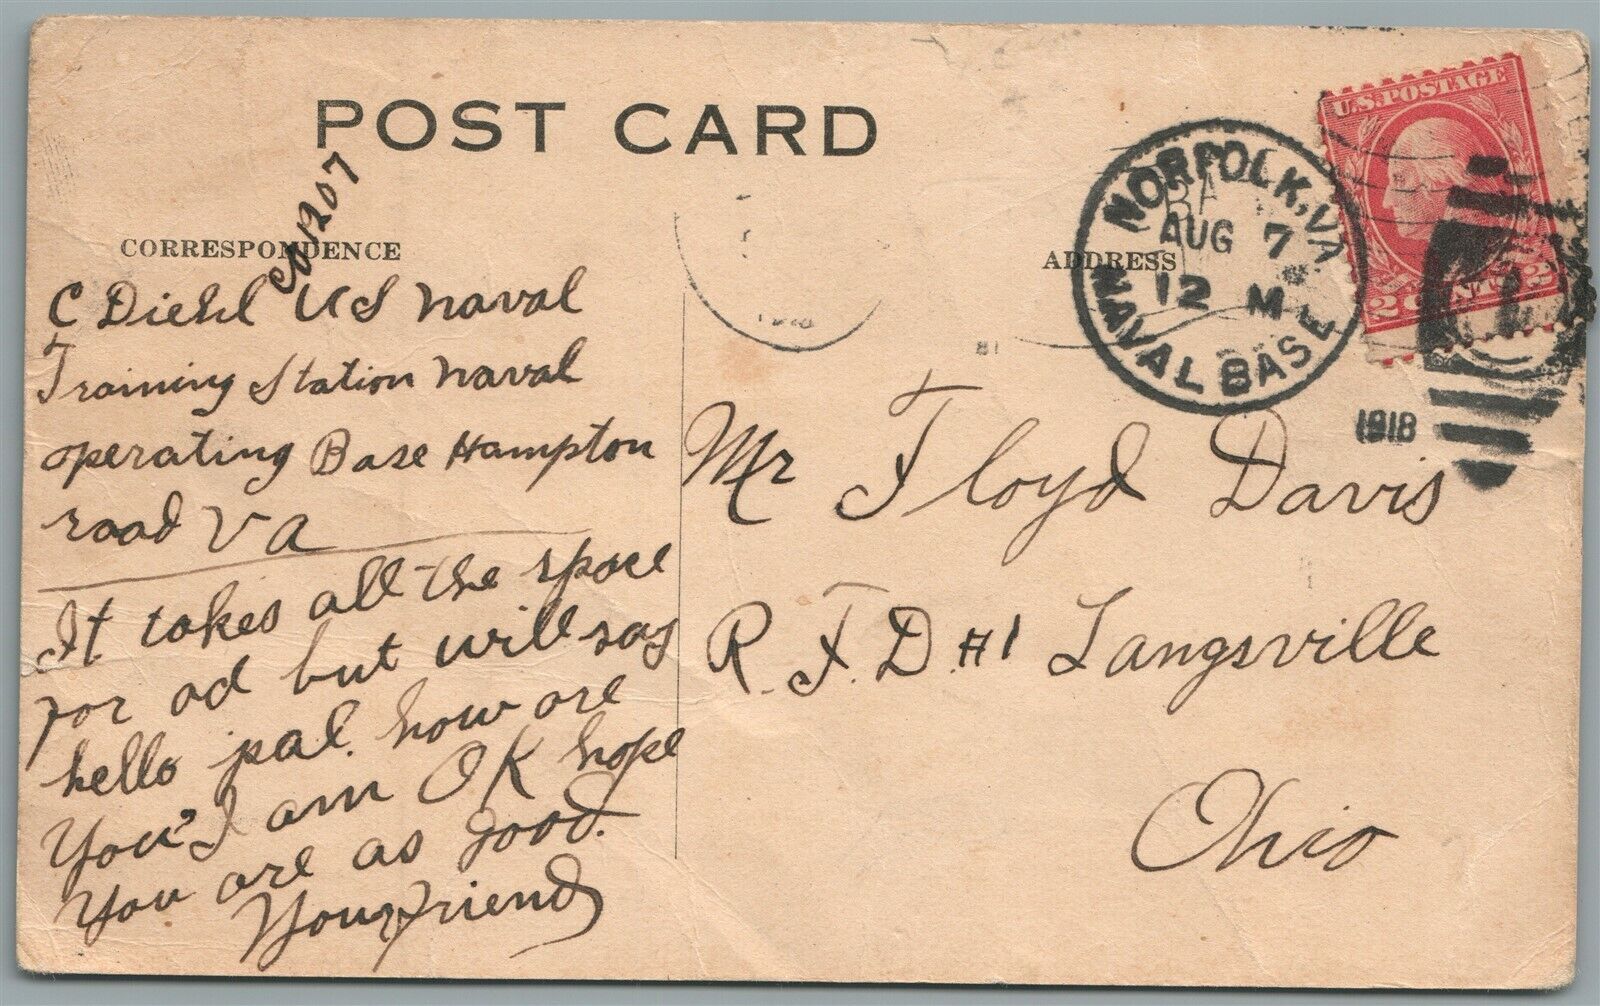 POST CARD
CORRESPONDENCE
ADDRESS
Co 1207
C Diehl US Naval
Training Station naval
operating Base Hampton
road Va
It takes all the space
for ad but will say
hello pal. how are
You? I am OK hope
You are as good.
Your friend
U.S. POSTAGE
2 CENTS 2
NORFOLK, VA.
AUG 7
12 M
NAVAL BASE
1918
Mr Floyd Davis
R.F.D #1 Langsville
Ohio